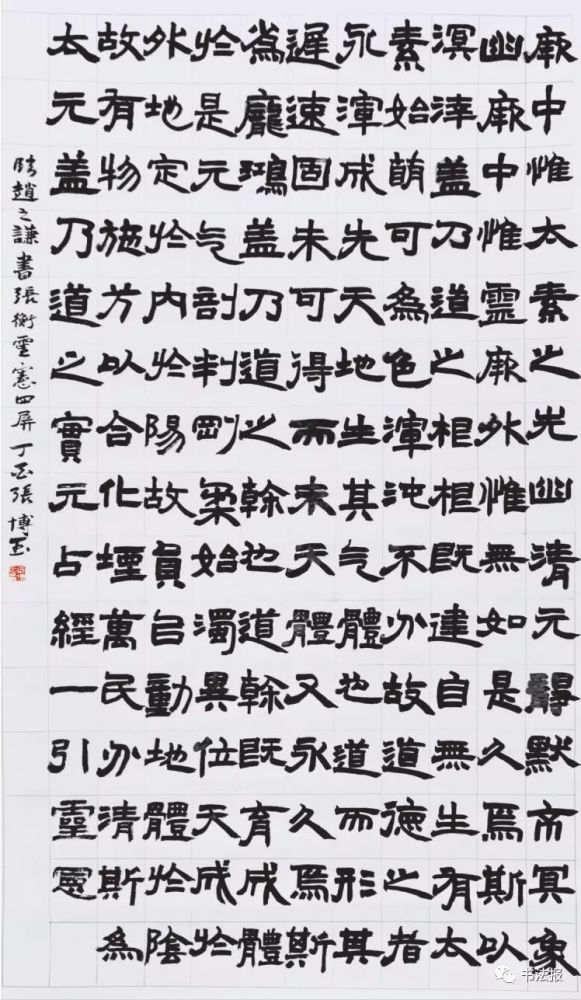 厥中惟太素之先幽清元靜默而冥象
幽厥中惟靈厥外惟無如是久焉斯以
溟涬盖乃道之相相既建自無生有太
素始萌可為色渾沌不分故道德之者
永渾成先天地生其气體也道而形其
遲速固未可得而未天體又永久焉斯
為龐鴻盖乃道之幹也道幹既育成體
於是元气剖判剛梁始濁異位天成於
外地定於內於陽故員台動地體於陰
故有物施方以合化堙萬民分清斯為
太元盖乃道之實元占經一引靈憲
临趙之謙書張衡靈憲四屏丁酉張博书
书法报